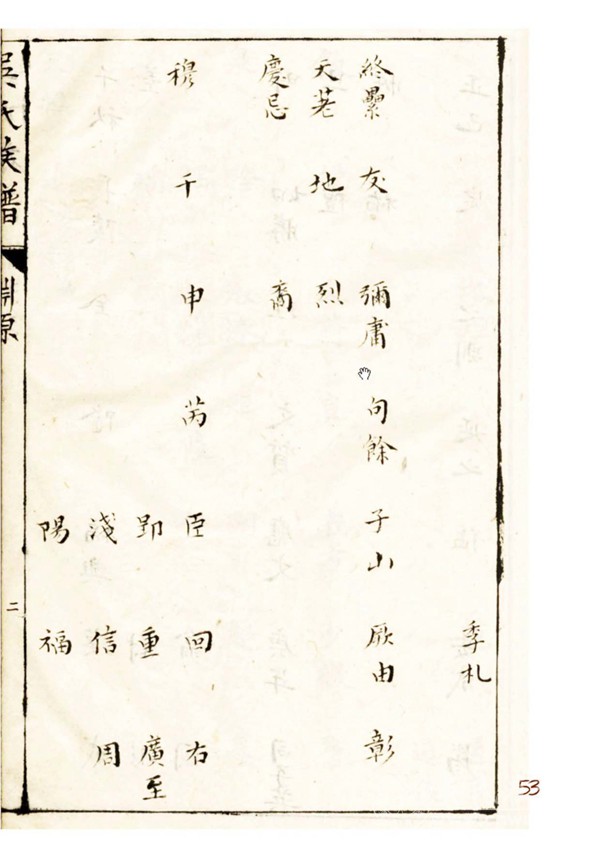 季札
終纍 友 彌庸 句餘 子山 厥由 彰
夭 地 烈
慶忌 裔
穆 千 申 芮 臣 回 右
郢 重 廣至
淺 信 周
陽 福
吳氏族譜 淵源 二
53